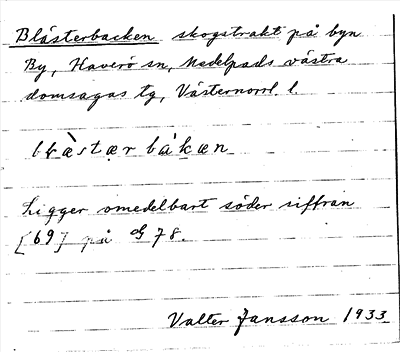 Blästerbacken skogstrakt på byn
By, Haverö sn, Medelpads västra
domsagas tg, Västernorrl. l.
bḷæ̀stær bàkæn
Ligger omedelbart söder siffran
[69] på G 78.
Valter Jansson 1933